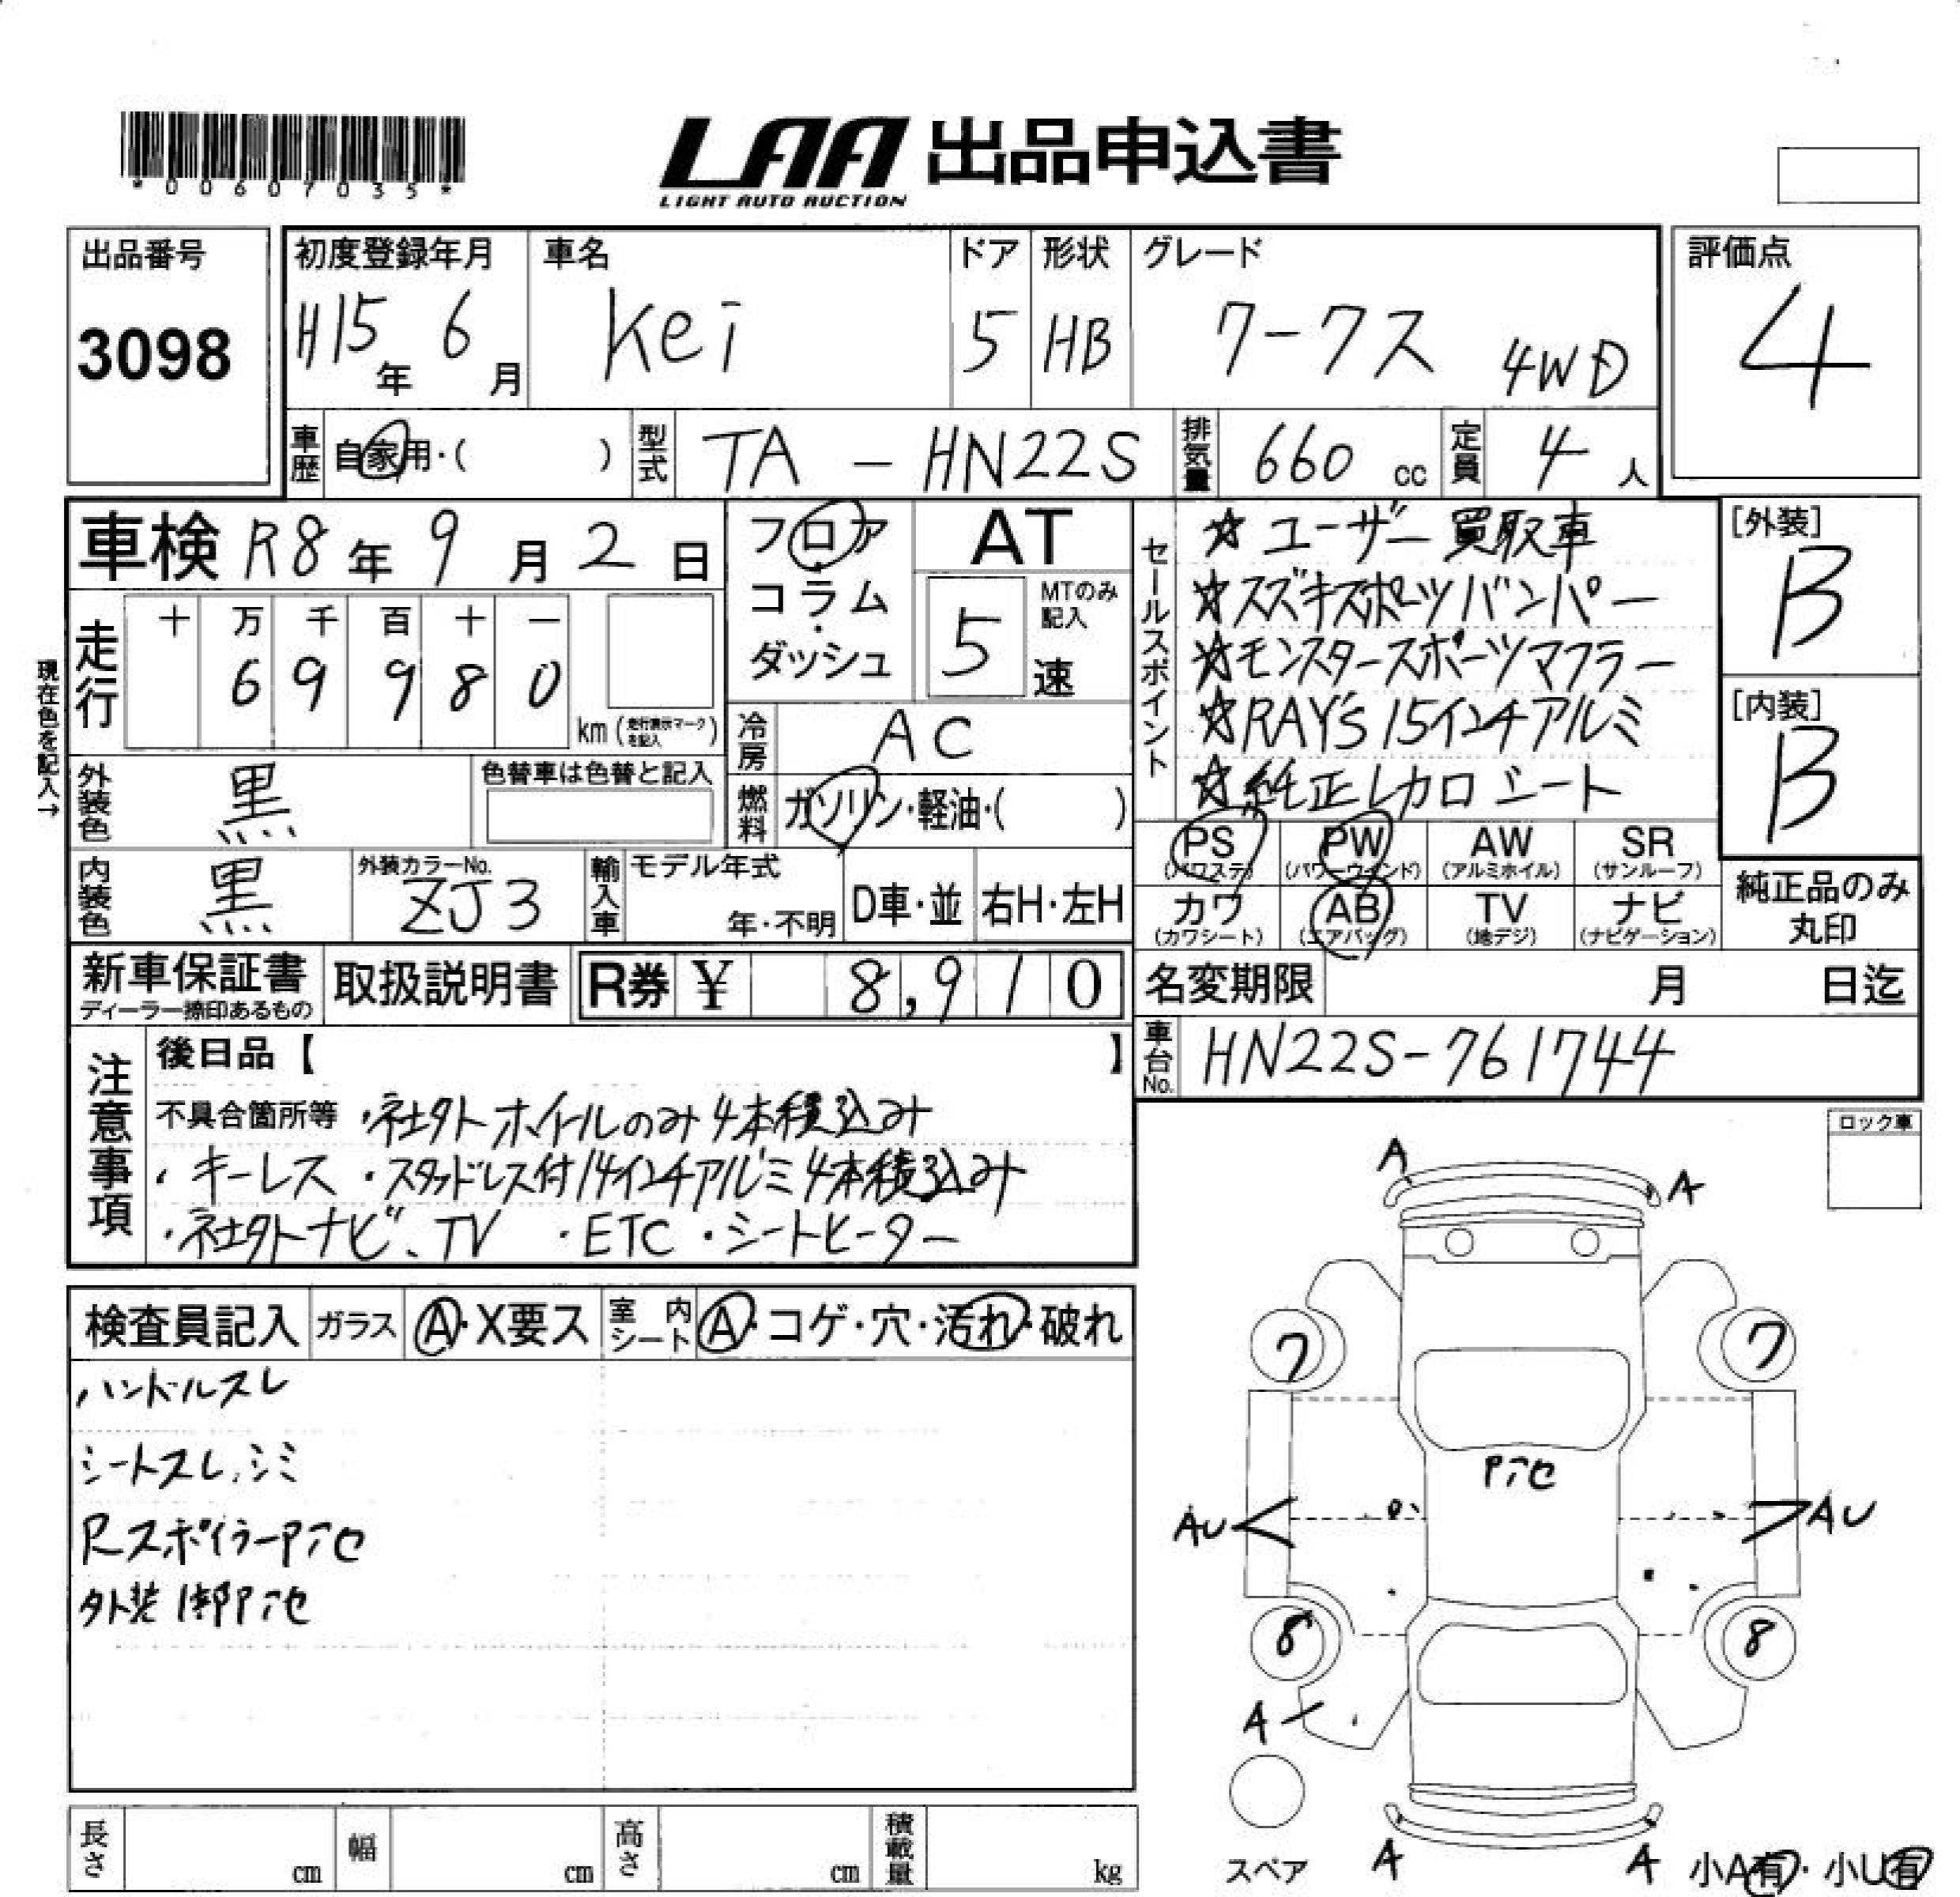 *00607035*
LAA 出品申込書
LIGHT AUTO AUCTION
出品番号
3098
初度登録年月
H15年 6月
車名
Kei
ドア
5
形状
HB
グレード
ワークス 4WD
評価点
4
車歴 自家用・( )
型式 TA - HN22S
排気量 660 cc
定員 4 人
車検 R8年 9月 2日
現在色を記入→
走行
十 万 千 百 十 一
6 9 9 8 0
km (走行表示マークを記入)
フロア・コラム・ダッシュ
AT
MTのみ記入
5 速
冷房 AC
燃料 ガソリン・軽油・( )
外装色 黒
色替車は色替と記入
内装色 黒
外装カラーNo.
ZJ3
輸入車 モデル年式
年・不明
D車・並
右H・左H
セールスポイント
☆ ユーザー買取車
☆スズキスポーツバンパー
☆モンスタースポーツマフラー
☆RAY'S 15インチアルミ
☆純正レカロシート
[外装]
B
[内装]
B
PS (パワステ)
PW (パワーウインド)
AW (アルミホイル)
SR (サンルーフ)
カワ (カワシート)
AB (エアバッグ)
TV (地デジ)
ナビ (ナビゲーション)
純正品のみ
丸印
新車保証書
ディーラー捺印あるもの
取扱説明書
R券 ¥ 8,910
名変期限 月 日迄
車台No. HN22S-761744
注意事項
後日品【 】
不具合箇所等 ・社外ホイールのみ4本積込み
・キーレス ・スタッドレス付14インチアルミ4本積込み
・社外ナビ、TV ・ETC ・シートヒーター
ロック車
検査員記入
ガラス A・X要ス
室内シート A・コゲ・穴・汚れ・破れ
ハンドルスレ
シートスレ、シミ
Rスポイラー
外装
A A
7 7
AU AU
8 8
A
A A
スペア
小A有・小U有
長さ cm
幅 cm
高さ cm
積載量 kg